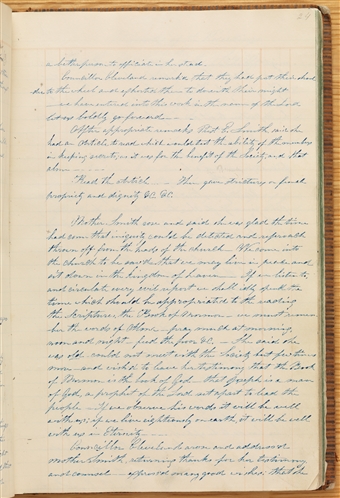 29
a better person to officiate in her stead.
Councillor Cleveland remarked that they had put their shoul-
der to the wheel and exhorted them to do with their might
we have entered into this work in the name of the Lord
let us boldly go forward
After appropriate remarks Prest E. Smith said she
had an Article to read which would test the ability of the members
in keeping secrets; as it was for the benefit of the Society and that
alone
Read the Article Then gave strictures on female
propriety and dignity &C. &C.
Mother Smith rose and said she was glad the time
had come that iniquity could be detected and reproach
thrown off from the heads of the church We come into
the church to be saved that we may live in peace and
sit down in the kingdom of heaven If we listen to
and circulate every evil report we shall idly spend the
time which should be appropriated to the reading
the Scriptures, the Book of Mormon we must remem-
ber the words of Alma pray much at morning,
noon and night feed the poor &C. She said she
was old could not meet with the Society but few times
more and wish'd to leave her testimony that the Book
of Mormon is the book of God that Joseph is a man
of God, a prophet of the Lord set apart to lead the
people If we observe his words it will be well
with us; if we live righteously on earth, it will be well
with us in Eternity
Councillor Cleveland arose and address'd
Mother Smith, returning thanks for her testimony
and counsel expressed many good wishes that she